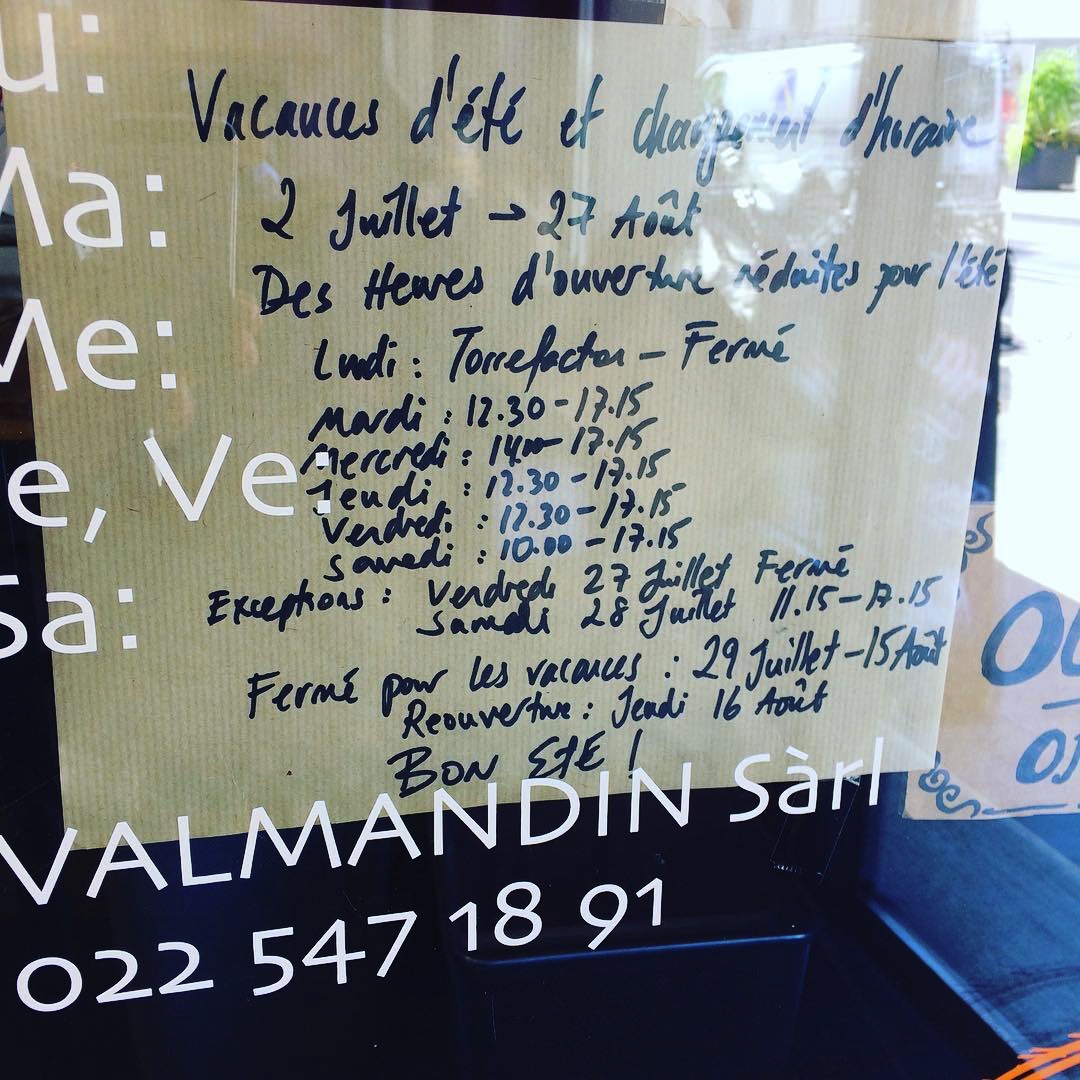 u:
Ma:
Me:
e, Ve:
Sa:
Vacances d'été et changement d'horaire
2 Juillet → 27 Août
Des Heures d'ouverture réduites pour l'été
Lundi : Torrefaction - Fermé
Mardi : 12.30 - 17.15
Mercredi : 14.00 - 17.15
Jeudi : 12.30 - 17.15
Vendredi : 12.30 - 17.15
Samedi : 10.00 - 17.15
Exceptions : Vendredi 27 Juillet Fermé
Samedi 28 Juillet 11.15 - 17.15
Fermé pour les vacances : 29 Juillet - 15 Août
Reouverture : Jeudi 16 Août
BON ETE !
VALMANDIN Sàrl
022 547 18 91